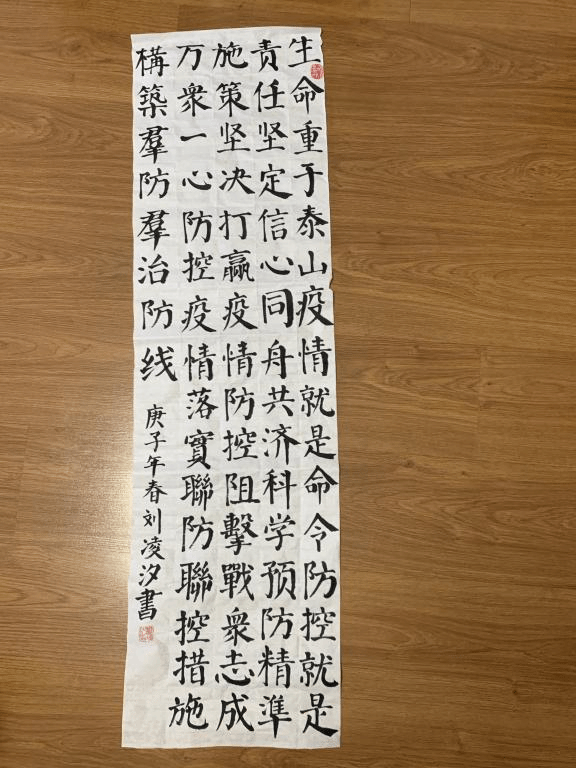 生命重于泰山疫情就是命令防控就是
责任坚定信心同舟共济科学预防精準
施策坚决打赢疫情防控阻擊戰衆志成
万衆一心防控疫情落實聯防聯控措施
構築羣防羣治防线
庚子年春刘凌汐書